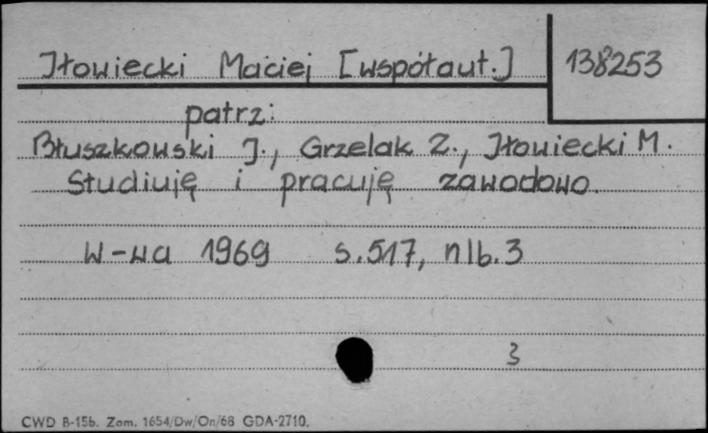 Iłowiecki Maciej [współaut.] 138253
patrz:
Błuszkowski J., Grzelak Z., Iłowiecki M.
Studiuję i pracuję zawodowo.
W-wa 1969 s.517, nlb.3
3
CWD B-15b. Zam. 1654/Dw/On/68 GDA-2710.